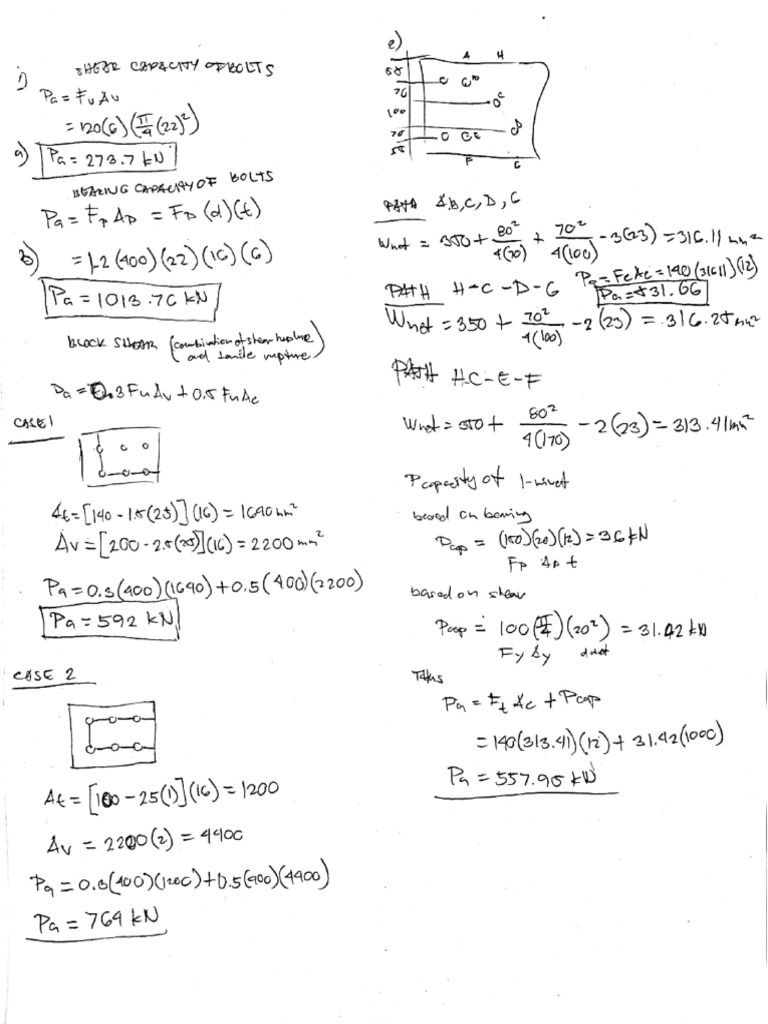 1) SHEAR CAPACITY OF BOLTS
Pa = Fv Av
= 120(6)(π/4 (22)²)
a) Pa = 273.7 kN
BEARING CAPACITY OF BOLTS
Pa = Fp Ap = Fp (d)(t)
b) = 1.2(400)(22)(16)(6)
Pa = 1013.76 kN
BLOCK SHEAR (combination of shear rupture
and tensile rupture)
Pa = 0.3 Fu Av + 0.5 Fu At
CASE 1
At = [140 - 1.5(25)](16) = 1640 mm²
Av = [200 - 2.5(25)](16) = 2200 mm²
Pa = 0.3(400)(1640) + 0.5(400)(2200)
Pa = 592 kN
CASE 2
At = [100 - 25(1)](16) = 1200
Av = 2200(2) = 4400
Pa = 0.3(400)(1200) + 0.5(400)(4400)
Pa = 764 kN
2)
A H
55
76
100
70
55
C
D
E
F G
PATH A,B,C,D,G
Wnet = 350 + 80²/4(70) + 70²/4(100) - 3(23) = 316.11 mm²
Pa = Ft At = 140(316.11)(12)
Pa = 531.66
PATH H-C-D-G
Wnet = 350 + 70²/4(100) - 2(23) = 316.25 mm²
PATH HC-E-F
Wnet = 350 + 80²/4(170) - 2(23) = 313.41 mm²
Pcapacity of 1-rivet
based on bearing
Pcap = (150)(20)(12) = 36 kN
Fp Ap t
based on shear
Pcap = 100(π/4)(20²) = 31.42 kN
Fy Ay
Thus
Pa = Ft At + Pcap
= 140(313.41)(12) + 31.42(1000)
Pa = 557.95 kN